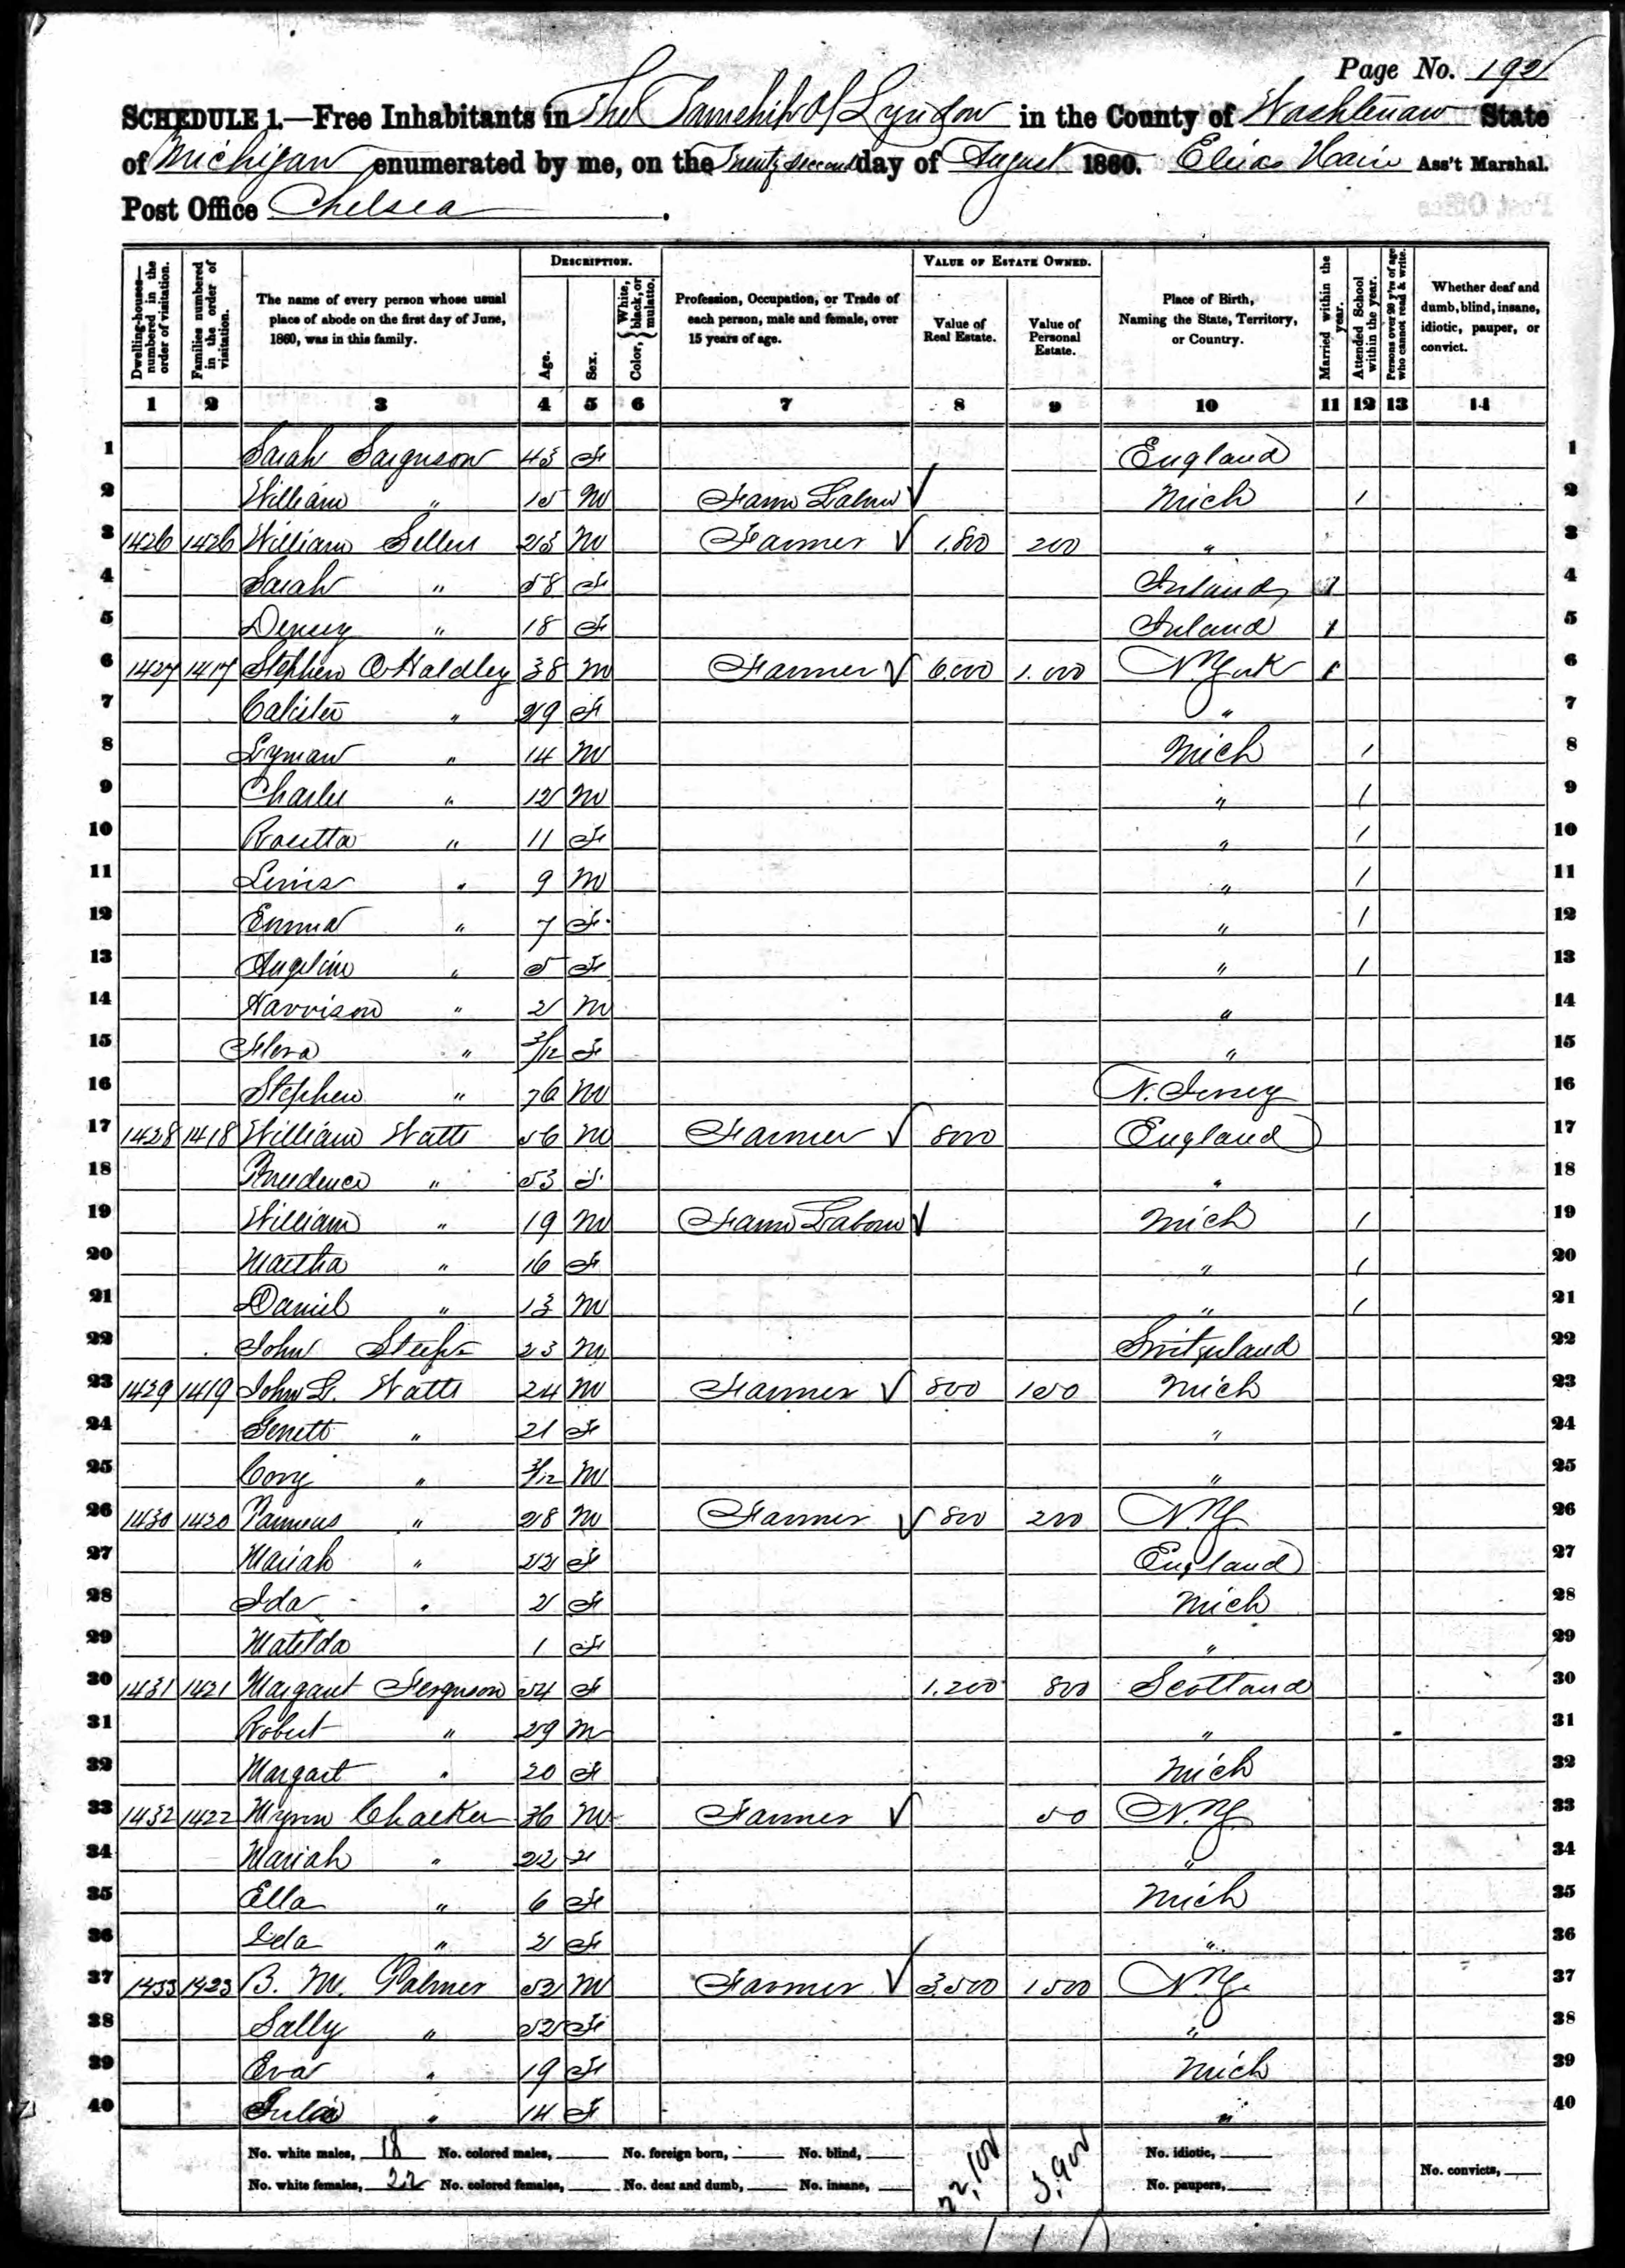 Page No. 192
SCHEDULE 1.—Free Inhabitants in The Township of Lyndon in the County of Washtenaw State
of Michigan enumerated by me, on the Twenty second day of August 1860. Elias Haire Ass't Marshal.
Post Office Chelsea.
Dwelling-houses—numbered in the order of visitation. Families numbered in the order of visitation. The name of every person whose usual place of abode on the first day of June, 1860, was in this family. DESCRIPTION. Age. Sex. Color, { White, black, or mulatto. Profession, Occupation, or Trade of each person, male and female, over 15 years of age. VALUE OF ESTATE OWNED. Value of Real Estate. Value of Personal Estate. Place of Birth, Naming the State, Territory, or Country. Married within the year. Attended School within the year. Persons over 20 y'rs of age who cannot read & write. Whether deaf and dumb, blind, insane, idiotic, pauper, or convict.
1 2 3 4 5 6 7 8 9 10 11 12 13 14
1 Sarah Sarguson 45 F England 1
2 William " 15 M Farm Labour ✓ Mich 1 2
3 1426 1426 William Sellers 25 M Farmer ✓ 1.800 200 " 3
4 Sarah " 58 F Irland 1 4
5 " 18 F Irland 1 5
6 1427 1417 Stephen O Haldley 38 M Farmer ✓ 6.000 1.000 N. York 1 6
7 " 29 F " 7
8 Lyman " 14 M Mich 1 8
9 Charles " 12 M " 1 9
10 Rosetta " 11 F " 1 10
11 Lewis " 9 M " 1 11
12 Emma " 7 F " 1 12
13 Angeline " 5 F " 1 13
14 Harrison " 2 M " 14
15 Flora " 3/12 F " 15
16 Stephen " 76 M N. Jersey 16
17 1428 1418 William Watts 56 M Farmer ✓ 8000 England 17
18 Pruedence " 53 F " 18
19 William " 19 M Farm Labour ✓ Mich 1 19
20 Martha " 16 F " 1 20
21 Daniel " 13 M " 1 21
22 John 23 M Switzerland 22
23 1429 1419 John L. Watts 24 M Farmer ✓ 800 100 Mich 23
24 Genett " 21 F " 24
25 Cory " 3/12 M " 25
26 1430 1420 " 28 M Farmer ✓ 800 200 N.Y. 26
27 Mariah " 22 F England 27
28 Ida " 2 F Mich 28
29 Matilda 1 F " 29
30 1431 1421 Margaret Ferguson 54 F 1.200 800 Scotland 30
31 Robert " 29 M " 31
32 Margaret " 20 F Mich 32
33 1432 1422 Myron Chalker 36 M Farmer ✓ 50 N.Y. 33
34 Mariah " 22 F " 34
35 Ella " 6 F Mich 35
36 Ida " 2 F " 36
37 1433 1423 B. M. Palmer 52 M Farmer ✓ 3.500 1500 N.Y. 37
38 Sally " 52 F " 38
39 Eva " 19 F Mich 39
40 Julia " 14 F " 40
No. white males, 18 No. colored males, No. foreign born, No. blind, 22,100 3,900 No. idiotic,
No. white females, 22 No. colored females, No. deaf and dumb, No. insane, No. paupers, No. convicts,